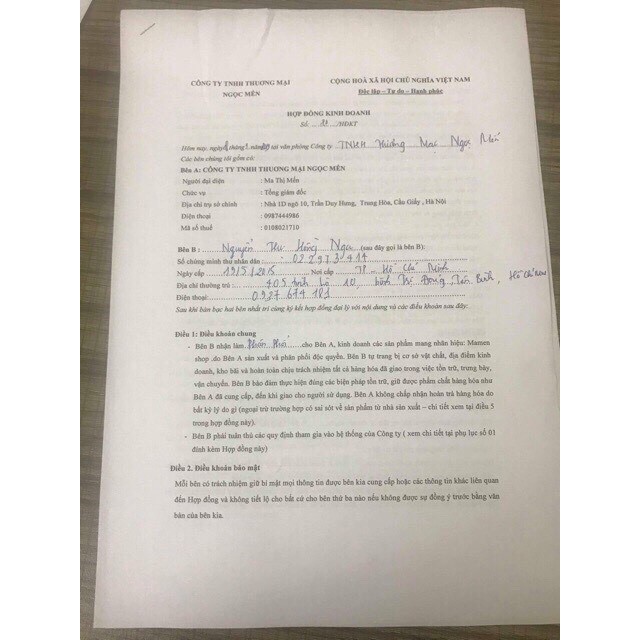 CÔNG TY TNHH THƯƠNG MẠI
NGỌC MẾN
CỘNG HOÀ XÃ HỘI CHỦ NGHĨA VIỆT NAM
Độc lập – Tự do – Hạnh phúc
HỢP ĐỒNG KINH DOANH
Số /HDKT
Hôm nay, ngày tháng năm tại văn phòng Công ty TNHH Thương Mại Ngọc Mến
Các bên chúng tôi gồm có:
Bên A: CÔNG TY TNHH THƯƠNG MẠI NGỌC MẾN
Người đại diện : Ma Thị Mến
Chức vụ : Tổng giám đốc
Địa chỉ trụ sở chính : Nhà 1D ngõ 10, Trần Duy Hưng, Trung Hòa, Cầu Giấy, Hà Nội
Điện thoại : 0987444986
Mã số thuế : 0108021710
Bên B : Nguyễn Thu Hồng Nga (sau đây gọi là bên B):
Số chứng minh thư nhân dân : 022973414
Ngày cấp 19/5/2015 Nơi cấp TP – Hồ Chí Minh
Địa chỉ thường trú : 205 tỉnh lộ 10, bình Trị Đông, Tân Bình, Hồ Chí Minh
Điện thoại: 0937 674 181
Sau khi bàn bạc hai bên nhất trí cùng ký kết hợp đồng đại lý với nội dung và các điều khoản sau đây:
Điều 1: Điều khoản chung
- Bên B nhận làm Phân Phối cho Bên A, kinh doanh các sản phẩm mang nhãn hiệu: Mamen
shop .do Bên A sản xuất và phân phối độc quyền. Bên B tự trang bị cơ sở vật chất, địa điểm kinh
doanh, kho bãi và hoàn toàn chịu trách nhiệm tất cả hàng hóa đã giao trong việc tồn trữ, trưng bày,
vận chuyển. Bên B bảo đảm thực hiện đúng các biện pháp tồn trữ, giữ được phẩm chất hàng hóa như
Bên A đã cung cấp, đến khi giao cho người sử dụng. Bên A không chấp nhận hoàn trả hàng hóa do
bất kỳ lý do gì (ngoại trừ trường hợp có sai sót về sản phẩm từ nhà sản xuất – chi tiết xem tại điều 5
trong hợp đồng này).
- Bên B phải tuân thủ các quy định tham gia vào hệ thống của Công ty ( xem chi tiết tại phụ lục số 01
đính kèm Hợp đồng này)
Điều 2. Điều khoản bảo mật
Mỗi bên có trách nhiệm giữ bí mật mọi thông tin được bên kia cung cấp hoặc các thông tin khác liên quan
đến Hợp đồng và không tiết lộ cho bất cứ cho bên thứ ba nào nếu không được sự đồng ý trước bằng văn
bản của bên kia.